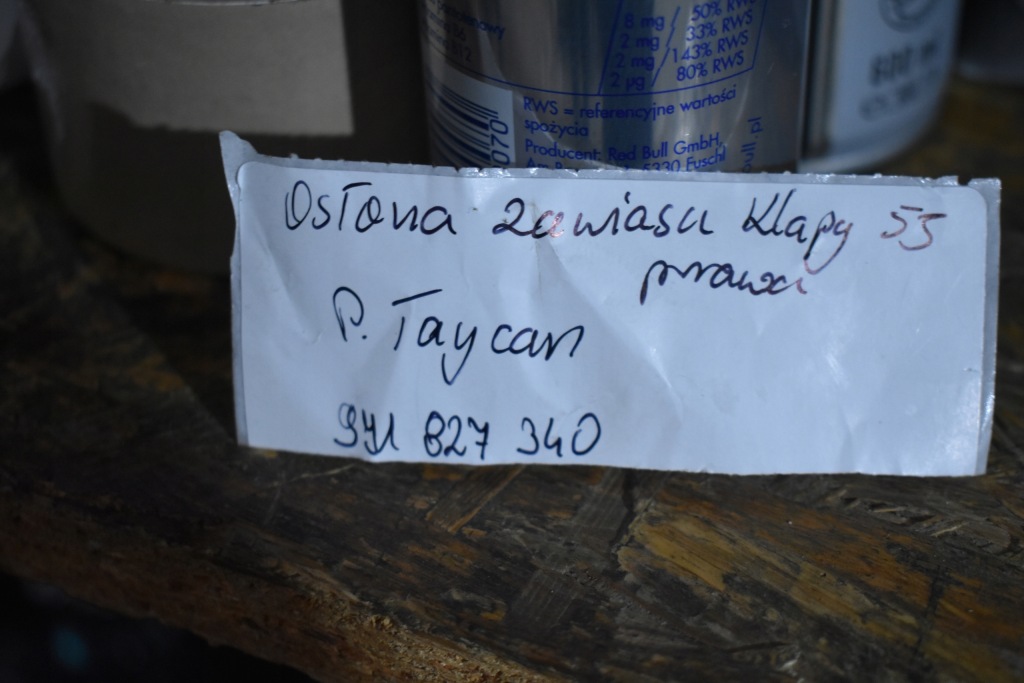 8 mg / 50% RWS
2 mg / 33% RWS
2 mg / 143% RWS
2 µg / 80% RWS
RWS = referencyjne wartości
spożycia
Producent: Red Bull GmbH,
5330 Fuschl
070
Osłona zawiasu klapy 55
prawa
P. Taycan
9J1 827 340